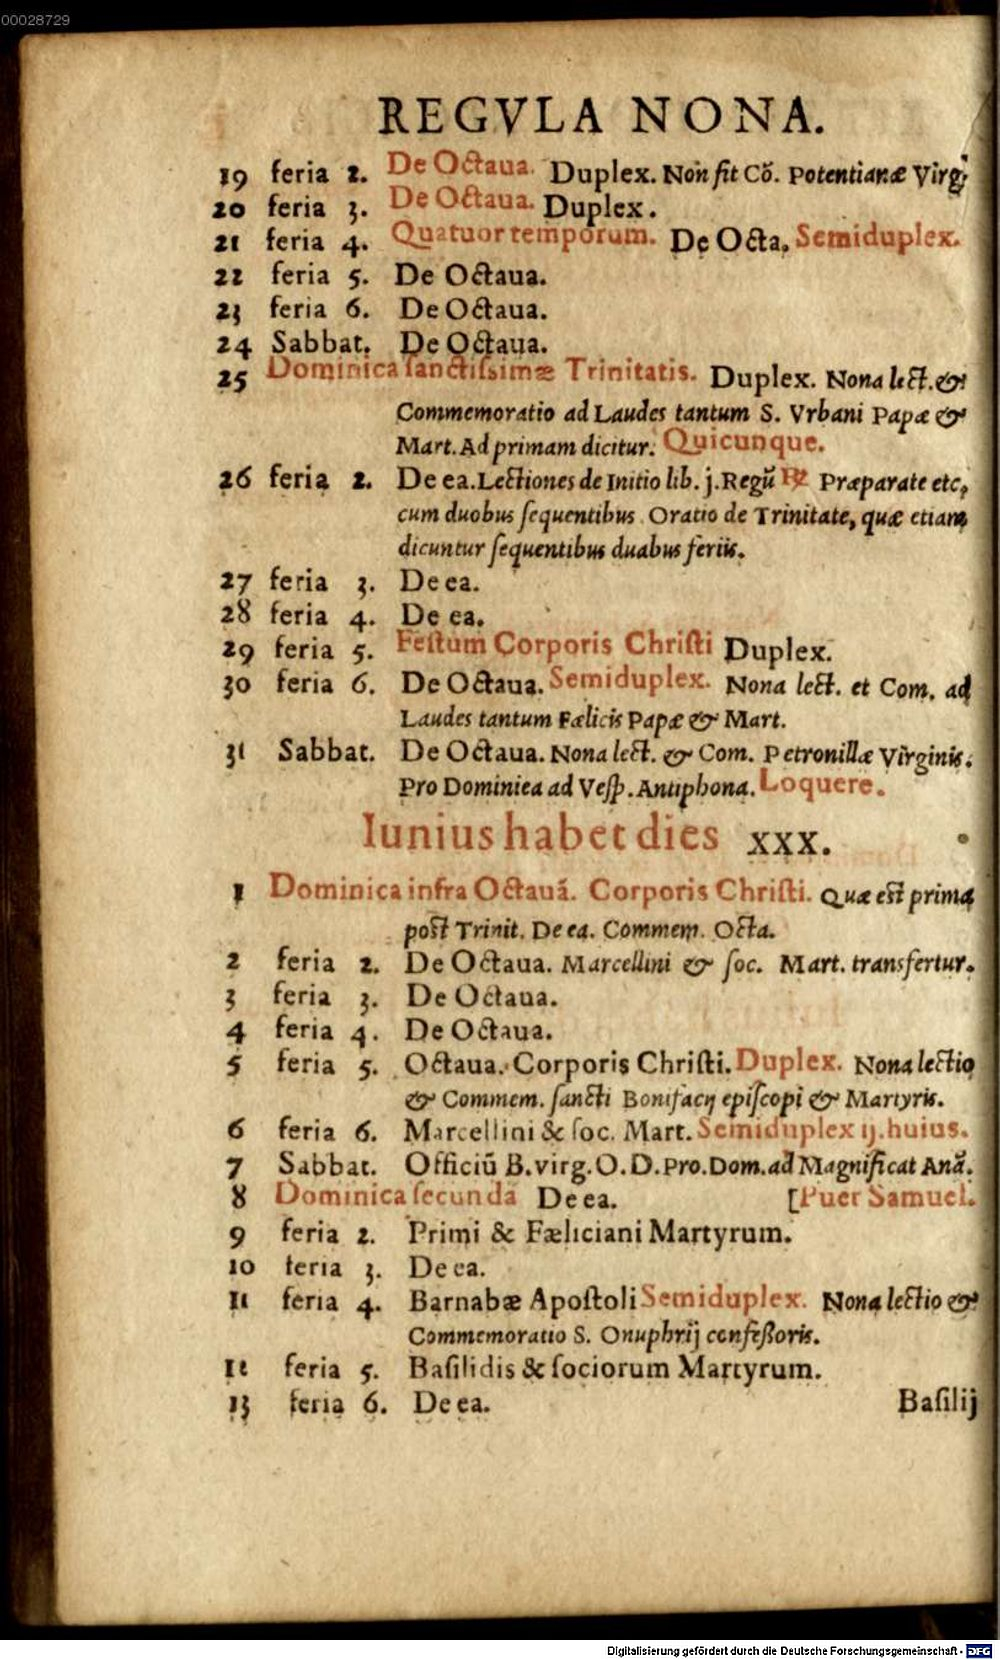 00028729
REGVLA NONA.
19 feria 2. De Octaua. Duplex. Non fit Cõ. Potentianæ Virg;
20 feria 3. De Octaua. Duplex.
21 feria 4. Quatuor temporum. De Octa. Semiduplex.
22 feria 5. De Octaua.
23 feria 6. De Octaua.
24 Sabbat. De Octaua.
25 Dominica ſanctiſsimæ Trinitatis. Duplex. Nona lect. &
Commemoratio ad Laudes tantum S. Vrbani Papæ &
Mart. Ad primam dicitur. Quicunque.
26 feria 2. De ea. Lectiones de Initio lib. j. Regũ ℟ Præparate etc,
cum duobus ſequentibus. Oratio de Trinitate, quæ etiam
dicuntur ſequentibus duabus feriis.
27 feria 3. De ea.
28 feria 4. De ea.
29 feria 5. Feſtum Corporis Chriſti Duplex.
30 feria 6. De Octaua. Semiduplex. Nona lect. et Com. ad
Laudes tantum Fælicis Papæ & Mart.
31 Sabbat. De Octaua. Nona lect. & Com. Petronillæ Virginis.
Pro Dominica ad Veſp. Antiphona. Loquere.
Iunius habet dies XXX.
1 Dominica infra Octauã. Corporis Chriſti. Quæ eſt prima
poſt Trinit. De ea. Commem. Octa.
2 feria 2. De Octaua. Marcellini & ſoc. Mart. transfertur.
3 feria 3. De Octaua.
4 feria 4. De Octaua.
5 feria 5. Octaua. Corporis Chriſti. Duplex. Nona lectio
& Commem. ſancti Bonifacij epiſcopi & Martyris.
6 feria 6. Marcellini & ſoc. Mart. Semiduplex ij. huius.
7 Sabbat. Officiũ B. virg. O. D. Pro. Dom. ad Magnificat Anã.
8 Dominica ſecunda De ea. [Puer Samuel.
9 feria 2. Primi & Fæliciani Martyrum.
10 feria 3. De ea.
11 feria 4. Barnabæ Apoſtoli Semiduplex. Nona lectio &
Commemoratio S. Onuphrij confeßoris.
12 feria 5. Baſilidis & ſociorum Martyrum.
13 feria 6. De ea. Baſilij
Digitalisierung gefördert durch die Deutsche Forschungsgemeinschaft - DFG